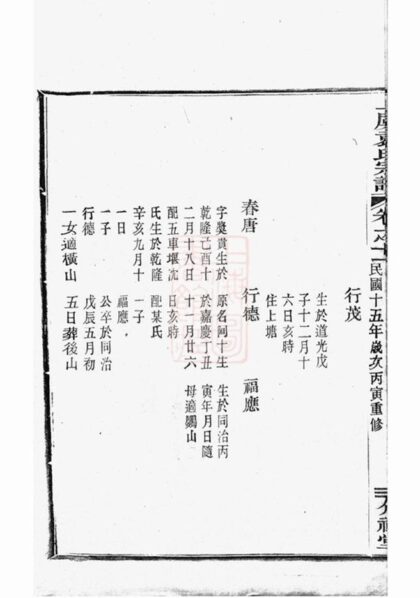 上虞袁氏宗譜
卷之十
民國十五年歲次丙寅重修
行茂
生於道光戊
子十二月十
六日亥時
住上塘
春唐
字虞貴生於
乾隆己酉十
二月十八日
配五車堰沈
氏生於乾隆
辛亥九月十
一日
一子
行德
一女適橫山
行德
原名阿十生
於嘉慶丁丑
十一月廿六
日亥時
配某氏
一子
福應
公卒於同治
戊辰五月初
五日葬後山
福應
生於同治丙
寅年月日隨
母適山